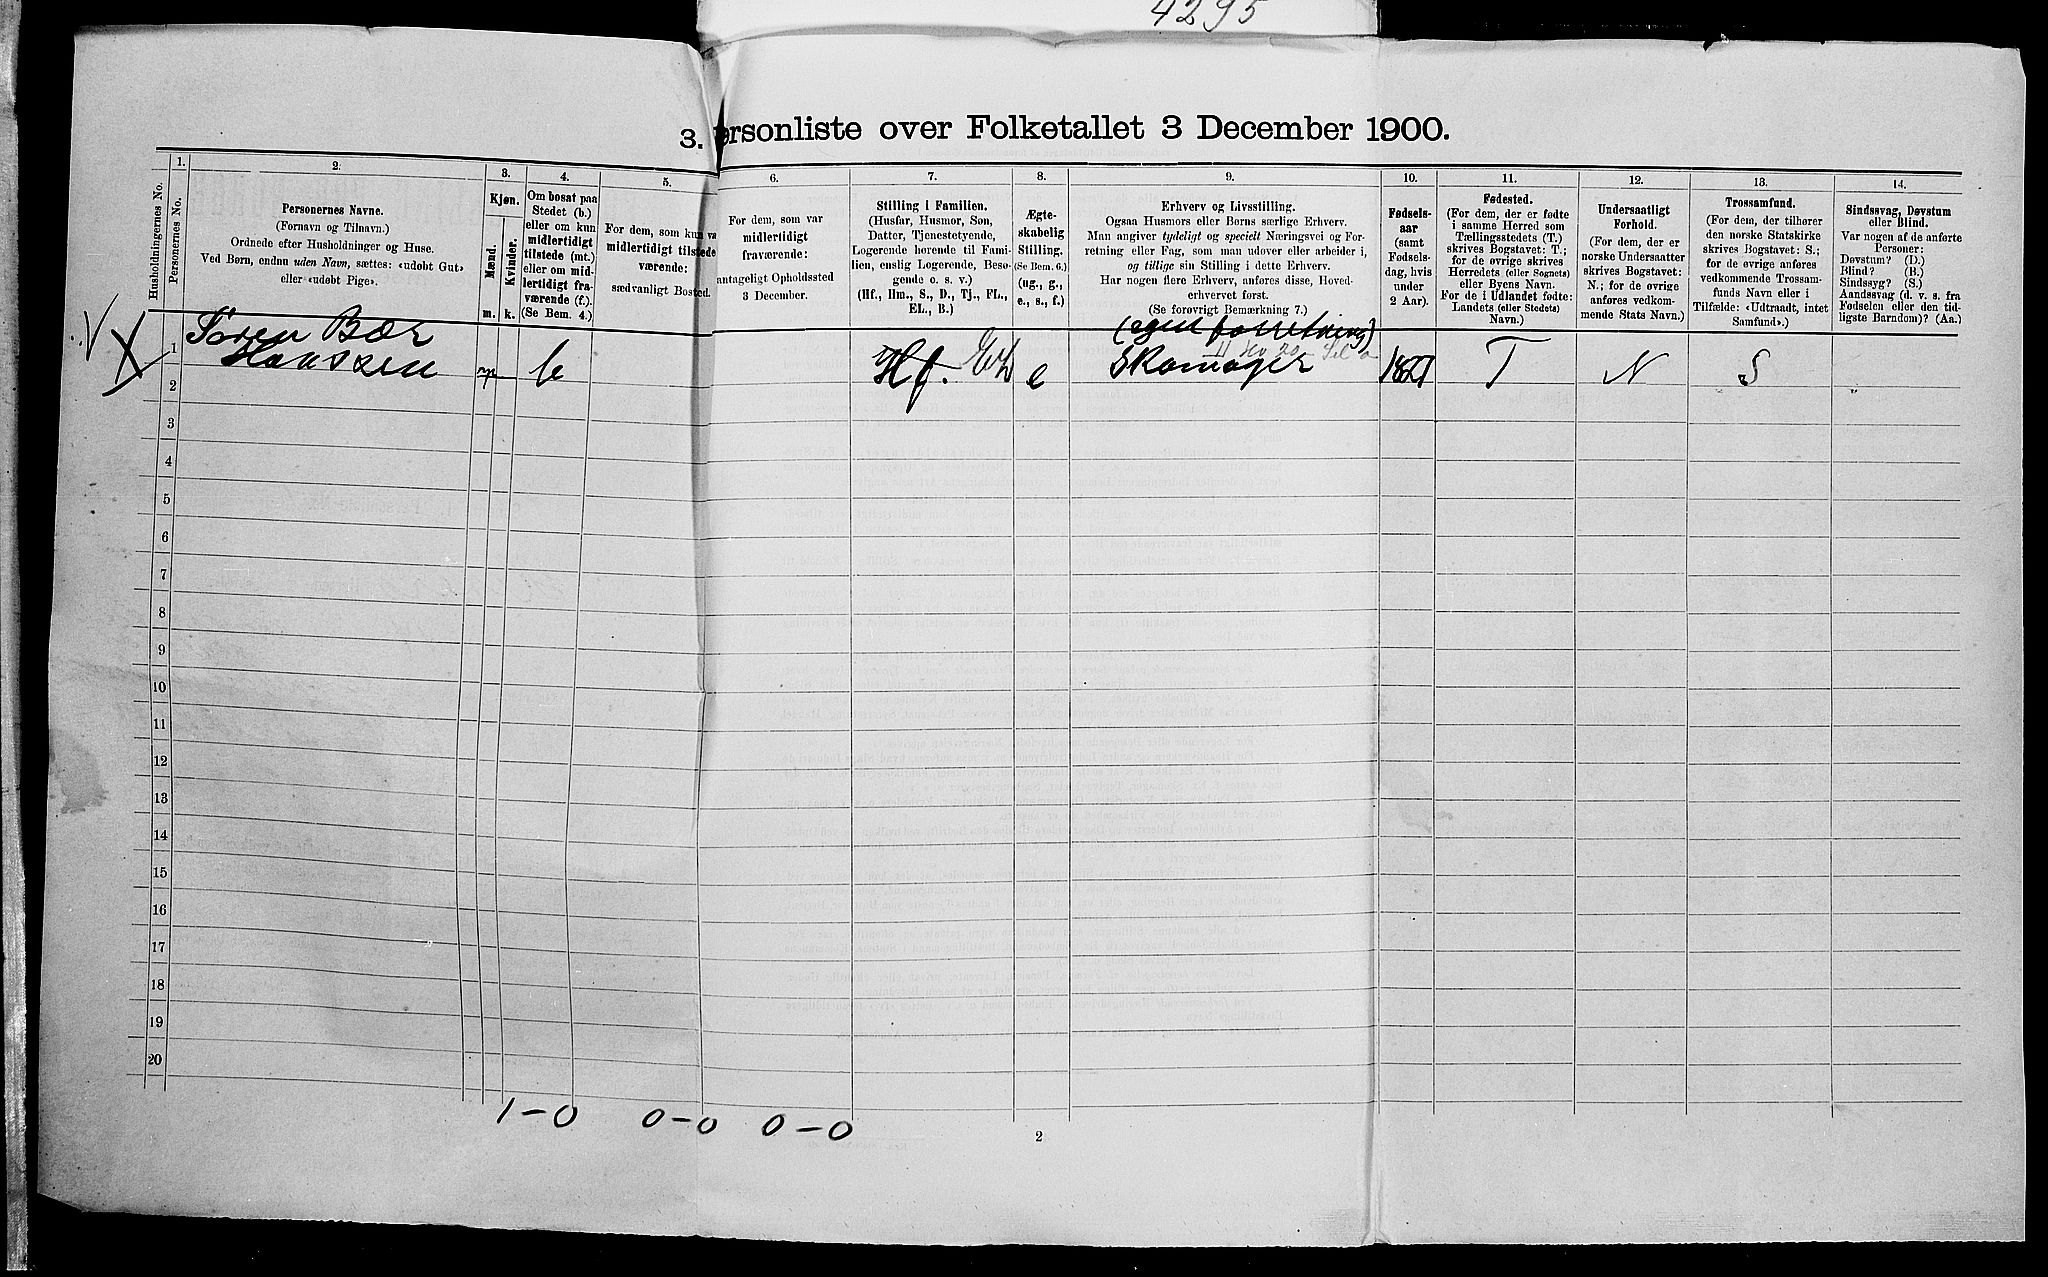 4295
3. Personliste over Folketallet 3 December 1900.
Husholdningernes No.
1.
Personernes No.
2.
Personernes Navne.
(Fornavn og Tilnavn.)
Ordnede efter Husholdninger og Huse.
Ved Børn, endnu uden Navn, sættes: «udøbt Gut»
eller «udøbt Pige».
3.
Kjøn.
Mænd.
Kvinder.
m.
k.
4.
Om bosat paa
Stedet (b.)
eller om kun
midlertidigt
tilstede (mt.)
eller om mid-
lertidigt fra-
værende (f.)
(Se Bem. 4.)
5.
For dem, som kun va
midlertidigt tilstede
værende:
sædvanligt Bosted.
6.
For dem, som var
midlertidigt
fraværende:
antageligt Opholdssted
3 December.
7.
Stilling i Familien.
(Husfar, Husmor, Søn,
Datter, Tjenestetyende,
Logerende hørende til Fami-
lien, enslig Logerende, Besø-
gende o. s. v.)
(Hf., Hm., S., D., Tj., FL.,
EL., B.)
8.
Ægte-
skabelig
Stilling.
(Se Bem. 6.)
(ug., g.,
e., s., f.)
9.
Erhverv og Livsstilling.
Ogsaa Husmors eller Børns særlige Erhverv.
Man angiver tydeligt og specielt Næringsvei og For-
retning eller Fag, som man udøver eller arbeider i,
og tillige sin Stilling i dette Erhverv.
Har nogen flere Erhverv, anføres disse, Hoved-
erhvervet først.
(Se forøvrigt Bemærkning 7.)
10.
Fødsels-
aar
(samt
Fødsels-
dag, hvis
under
2 Aar).
11.
Fødested.
(For dem, der er fødte
i samme Herred som
Tællingsstedets (T.)
skrives Bogstavet: T.;
for de øvrige skrives
Herredets (eller Sognets)
eller Byens Navn.
For de i Udlandet fødte:
Landets (eller Stedets)
Navn.)
12.
Undersaatligt
Forhold.
(For dem, der er
norske Undersaatter
skrives Bogstavet:
N.; for de øvrige
anføres vedkom-
mende Stats Navn.)
13.
Trossamfund.
(For dem, der tilhører
den norske Statskirke
skrives Bogstavet: S.;
for de øvrige anføres
vedkommende Trossam-
funds Navn eller i
Tilfælde: «Udtraadt, intet
Samfund».)
14.
Sindssvag, Døvstum
eller Blind.
Var nogen af de anførte
Personer:
Døvstum? (D.)
Blind? (B.)
Sindssyg? (S.)
Aandssvag (d. v. s. fra
Fødselen eller den tid-
ligste Barndom)? (Aa.)
Søren Bær (egen forretning)
1 Hanssen m b Hf. e Skomager 1827 T N S
2
3
4
5
6
7
8
9
10
11
12
13
14
15
16
17
18
19
20
1-0 0-0 0-0
2